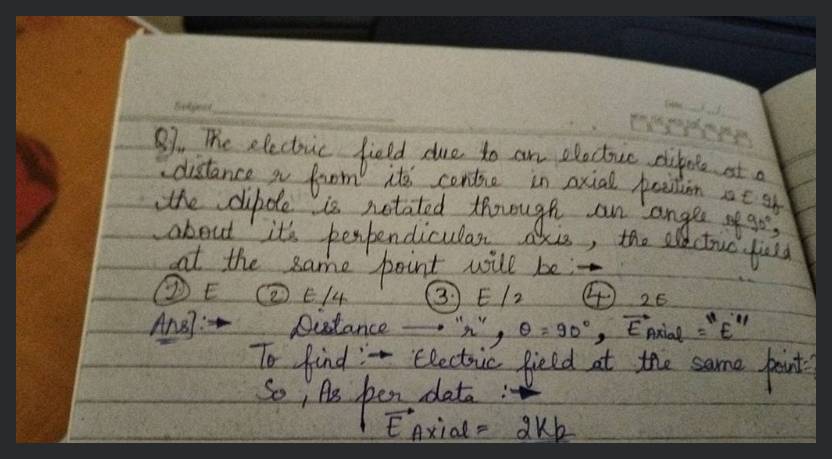 Subject
Date
Q]. The electric field due to an electric dipole at a
distance r from it's centre in axial position is E. If
the dipole is rotated through an angle of 90°,
about it's perpendicular axis, the electric field
at the same point will be :→
① E ② E/4 ③ E/2 ④ 2E
Ans]:→ Distance → "r", θ = 90°, E⃗ Axial = "E"
To find :→ Electric field at the same point = ?
So, As per data :→
E⃗ Axial = 2Kp